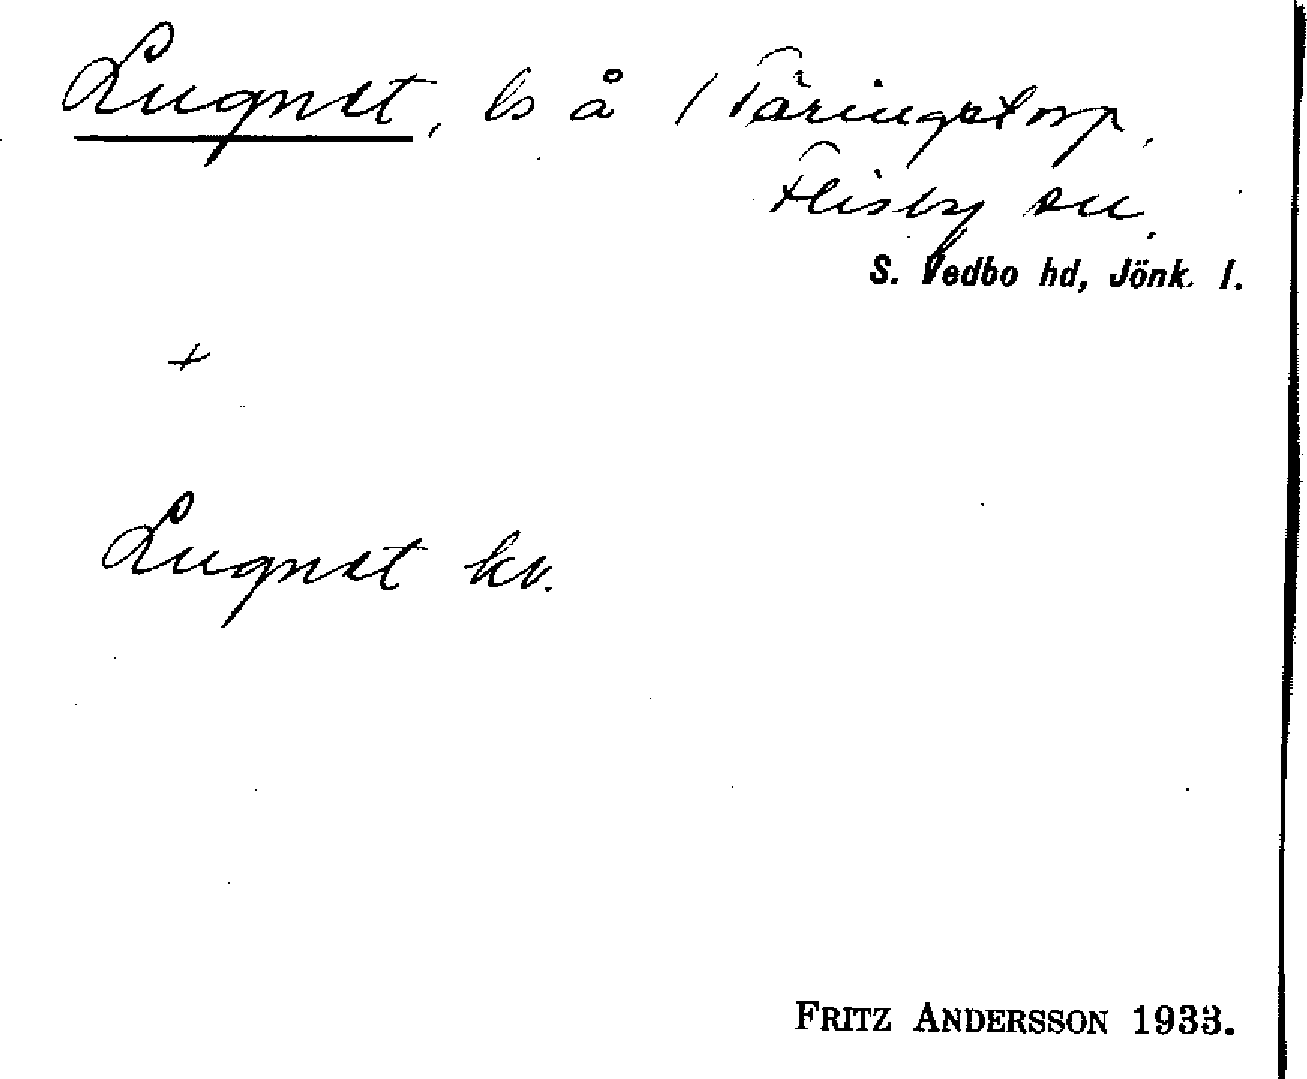 Lugnet, ls å 1 Täringstorp.
Flisby sn.
S. Vedbo hd, Jönk. l.
+
Lugnet kv.
FRITZ ANDERSSON 1933.